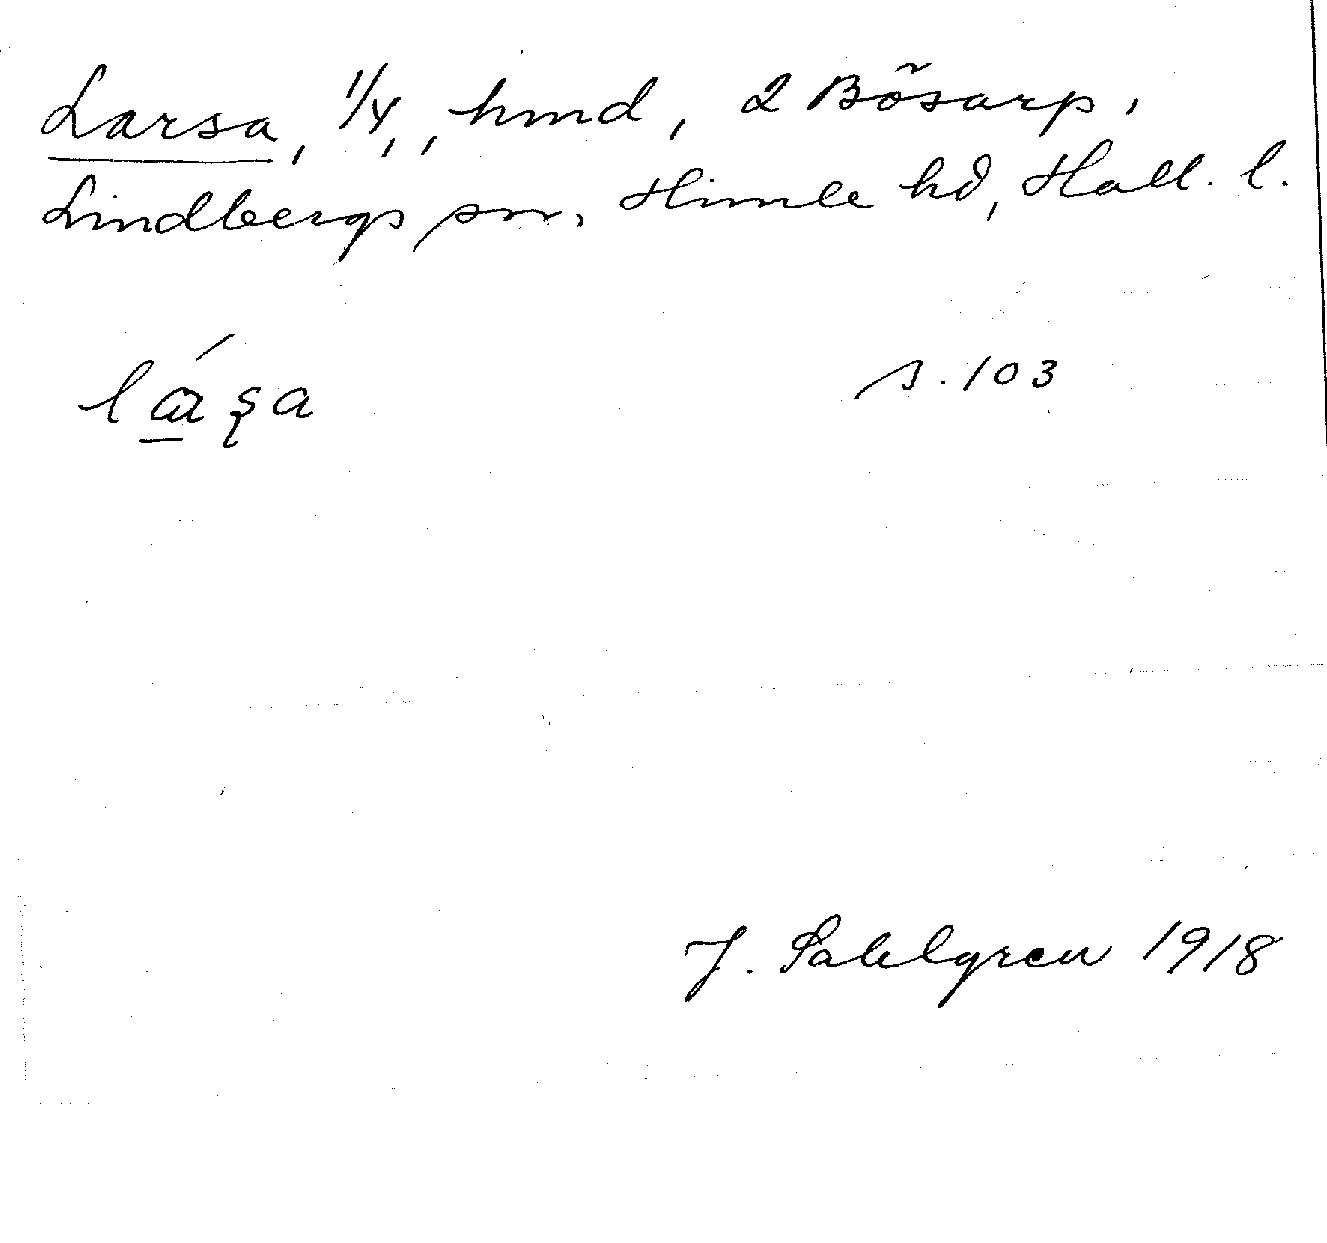 Larsa, 1/4, , hmd, 2 Bösarp,
Lindbergs sn, Himle hd, Hall. l.
lása s. 103
J. Sahlgren 1918